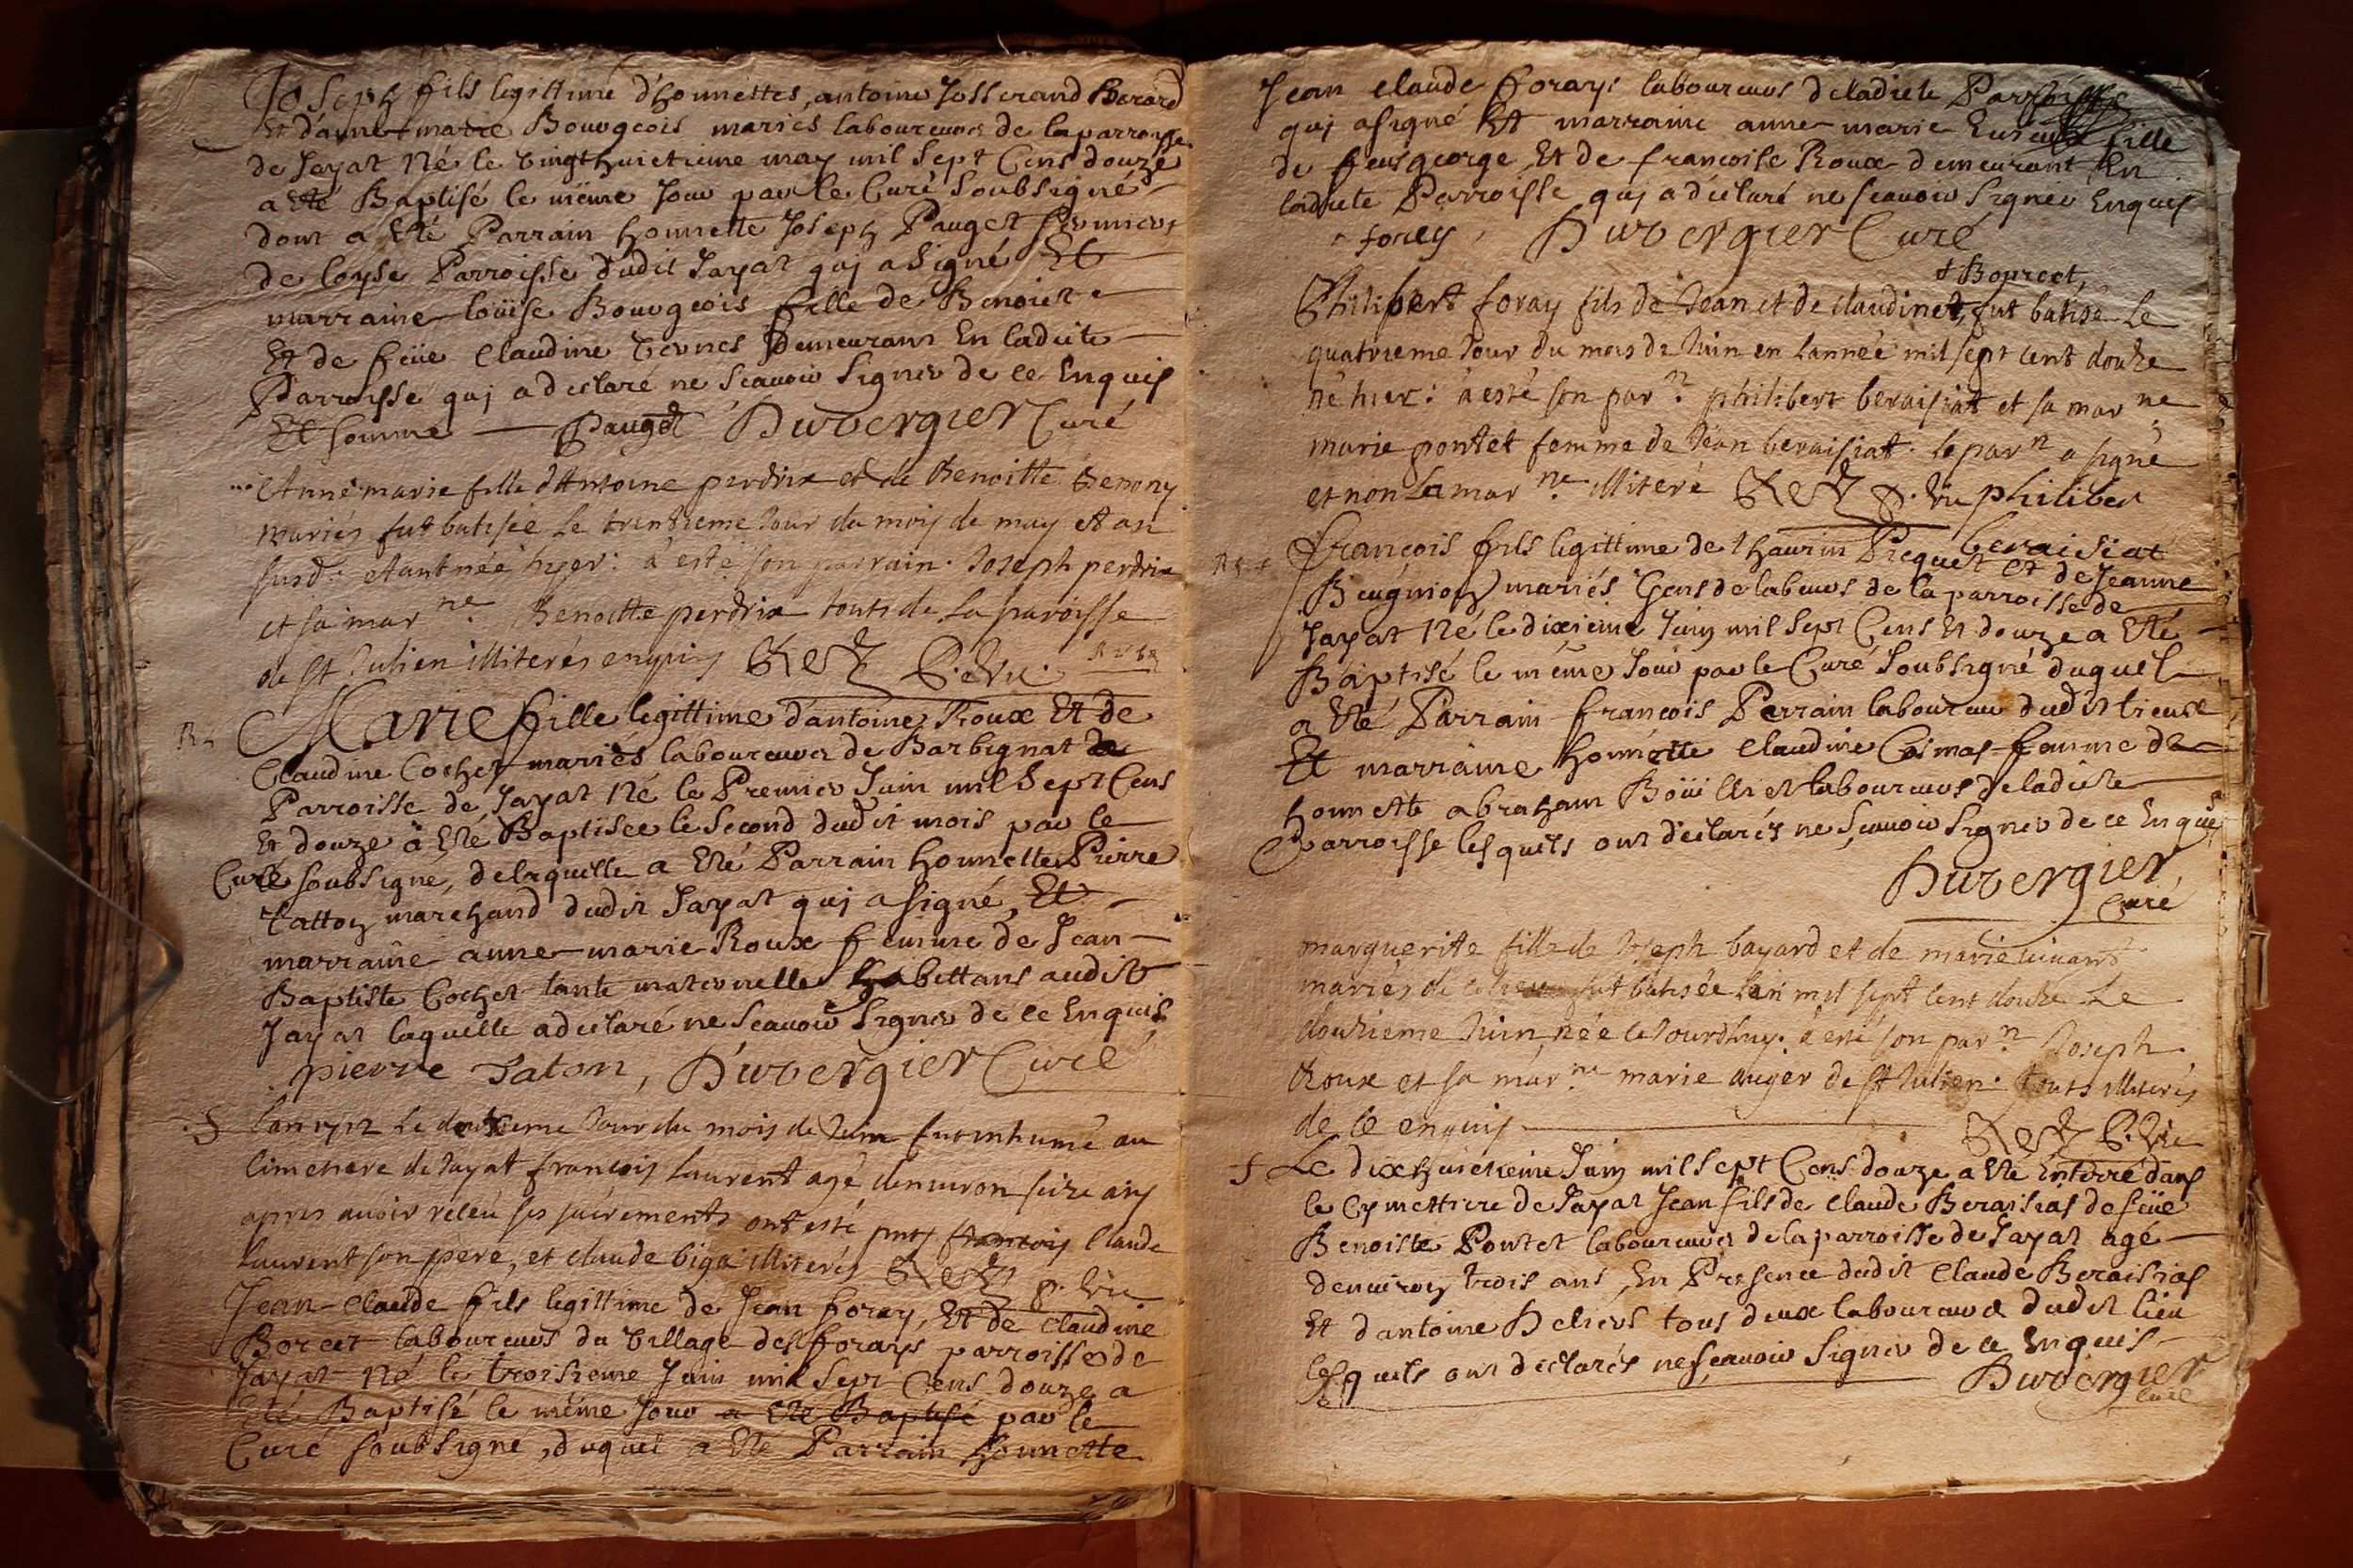 Joseph fils legittime d'honnettes, antoine Josserand Berard
Et d'anne-marie Bourgeois mariés laboureurs de la parroisse
de Jayat Né le vingthuictieme may mil Sept Cens douze
a Eté Baptisé le même Jour par le Curé Soubsigné
dont a Eté Parrain honnette Joseph Pauget
de loyse Parroisse dudit Jayat qui a Signé Et
marraine loüise Bourgeois fille de Benoict
Et de feüe Claudine Demeurans En ladite
Parroisse qui a declaré ne Scauoir Signer de ce Enquis
Et Somme Pauget Duvergier Curé
Anne marie fille d'Antoine perdrix et de Benoitte Benony
mariés fut batisée Le trentieme Jour du mois de may et an
susd. etant née hyer: a esté son parrain. Joseph perdrix
et sa mar ne Benoitte perdrix touts de La paroisse
de st Julien illiterés enquis
R
Marie fille legittime d'antoine Roux Et de
Claudine Cochet mariés laboureurs de Barbignat de
Parroisse de Jayat Né le Premier Juin mil Sept Cens
Et douze à Eté Baptisee le Second dudit mois par le
Curé soubsigné, delaquelle a Eté Parrain honnette Pierre
Tatton marchand dudit Jayat qui a signé, Et
marraine anne-marie Roux femme de Jean
Baptiste Cochet tante maternelle habittans audit
Jayat laquelle a declaré ne Scauoir Signer de ce Enquis
pierre Taton, Duvergier Curé
S Lan 1712 Le deuxieme Jour du mois de Juin fut inhumé au
Cimetiere de Jayat francois Laurent agé denuiron seize ans
apres auoir receu ses sacrements ont esté pnts francois Claude
Laurent son pere, et claude illiterés
Jean-Claude fils legittime de Jean foray, Et de Claudine
Borcet laboureurs du Village des forays parroisse de
Jayat Né le troisieme Juin mil Sept Cens douze a
Eté Baptisé le même Jour a Eté Baptisé par le
Curé soubsigné, duquel a Eté Parrain honnette
Jean Claude forays laboureur de ladicte Parroisse
qui a signé Et marraine anne-marie fille
de feu george Et de francoise Roux demeurant En
ladicte Parroisse qui a declaré ne scauoir Signer Enquis
forey Duvergier Curé
Bourcet,
Philibert foray fils de Jean et de claudine, fut batisé Le
quatrieme Jour du mois de Juin en Lannée mil sept cent douze
né hier: a esté son par n philibert beraisiat et sa mar ne
marie pontet femme de Jean beraisiat. Le par n a signé
et non La mar ne illiteré philiber
beraisiat
R françois fils legittime de thaurin Picquet et de Jeanne
mariés Gens de labeurs de la parroisse de
Jayat Né le dixieme Juin mil Sept Cens Et douze a Eté
Baptisé le même Jour par le Curé Soubsigné duquel
a Eté Parrain francois Perrain laboureur dudit lieux
Et marraine honnette Claudine femme de
honnette abraham Boüillet laboureurs de ladicte
Parroisse lesquels ont declarés ne Scauoir Signer de ce Enquis
Duvergier
Curé
marguerite fille de Joseph bayard et de marie
mariés de ce lieu fut batisée Lan mil sept cent douze Le
douzieme Juin née ce Jourdhuy. a esté son par n Joseph
Roux et sa mar ne marie auger de st Julien. touts illiterés
de ce enquis
S Le dixhuictieme Juin mil Sept Cens douze a Eté Enterré dans
le Cymettiere de Jayat Jean fils de Claude Beraisias de feüe
Benoiste Pontet laboureurs de la parroisse de Jayat agé
denuiron trois ans, En Presence dudit Claude Beraisias
Et d'antoine tous deux laboureurs dudit lieu
lesquels ont declarés ne scauoir Signer de ce Enquis
Duvergier
Curé